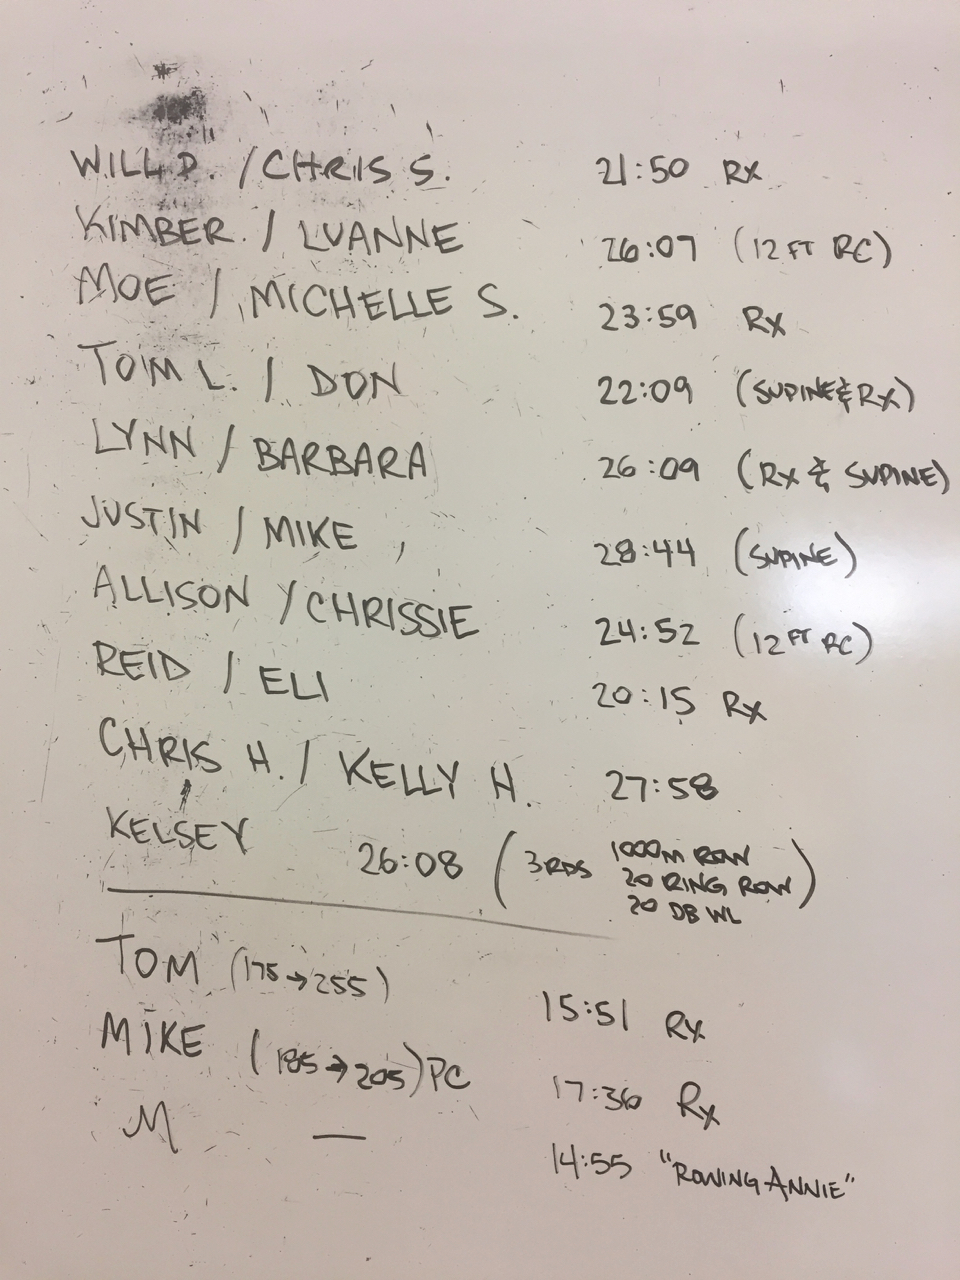 WILL D. / CHRIS S. 21:50 Rx
KIMBER. / LUANNE 26:07 (12 FT RC)
MOE / MICHELLE S. 23:59 Rx
TOM L. / DON 22:09 (SUPINE & Rx)
LYNN / BARBARA 26:09 (Rx & SUPINE)
JUSTIN / MIKE 28:44 (SUPINE)
ALLISON / CHRISSIE 24:52 (12 FT RC)
REID / ELI 20:15 Rx
CHRIS H. / KELLY H. 27:58
KELSEY 26:08 (3 RDS 1000M ROW
20 RING ROW)
20 DB WL
TOM (175→255) 15:51 Rx
MIKE (185→205) PC 17:36 Rx
M — 14:55 "ROWING ANNIE"